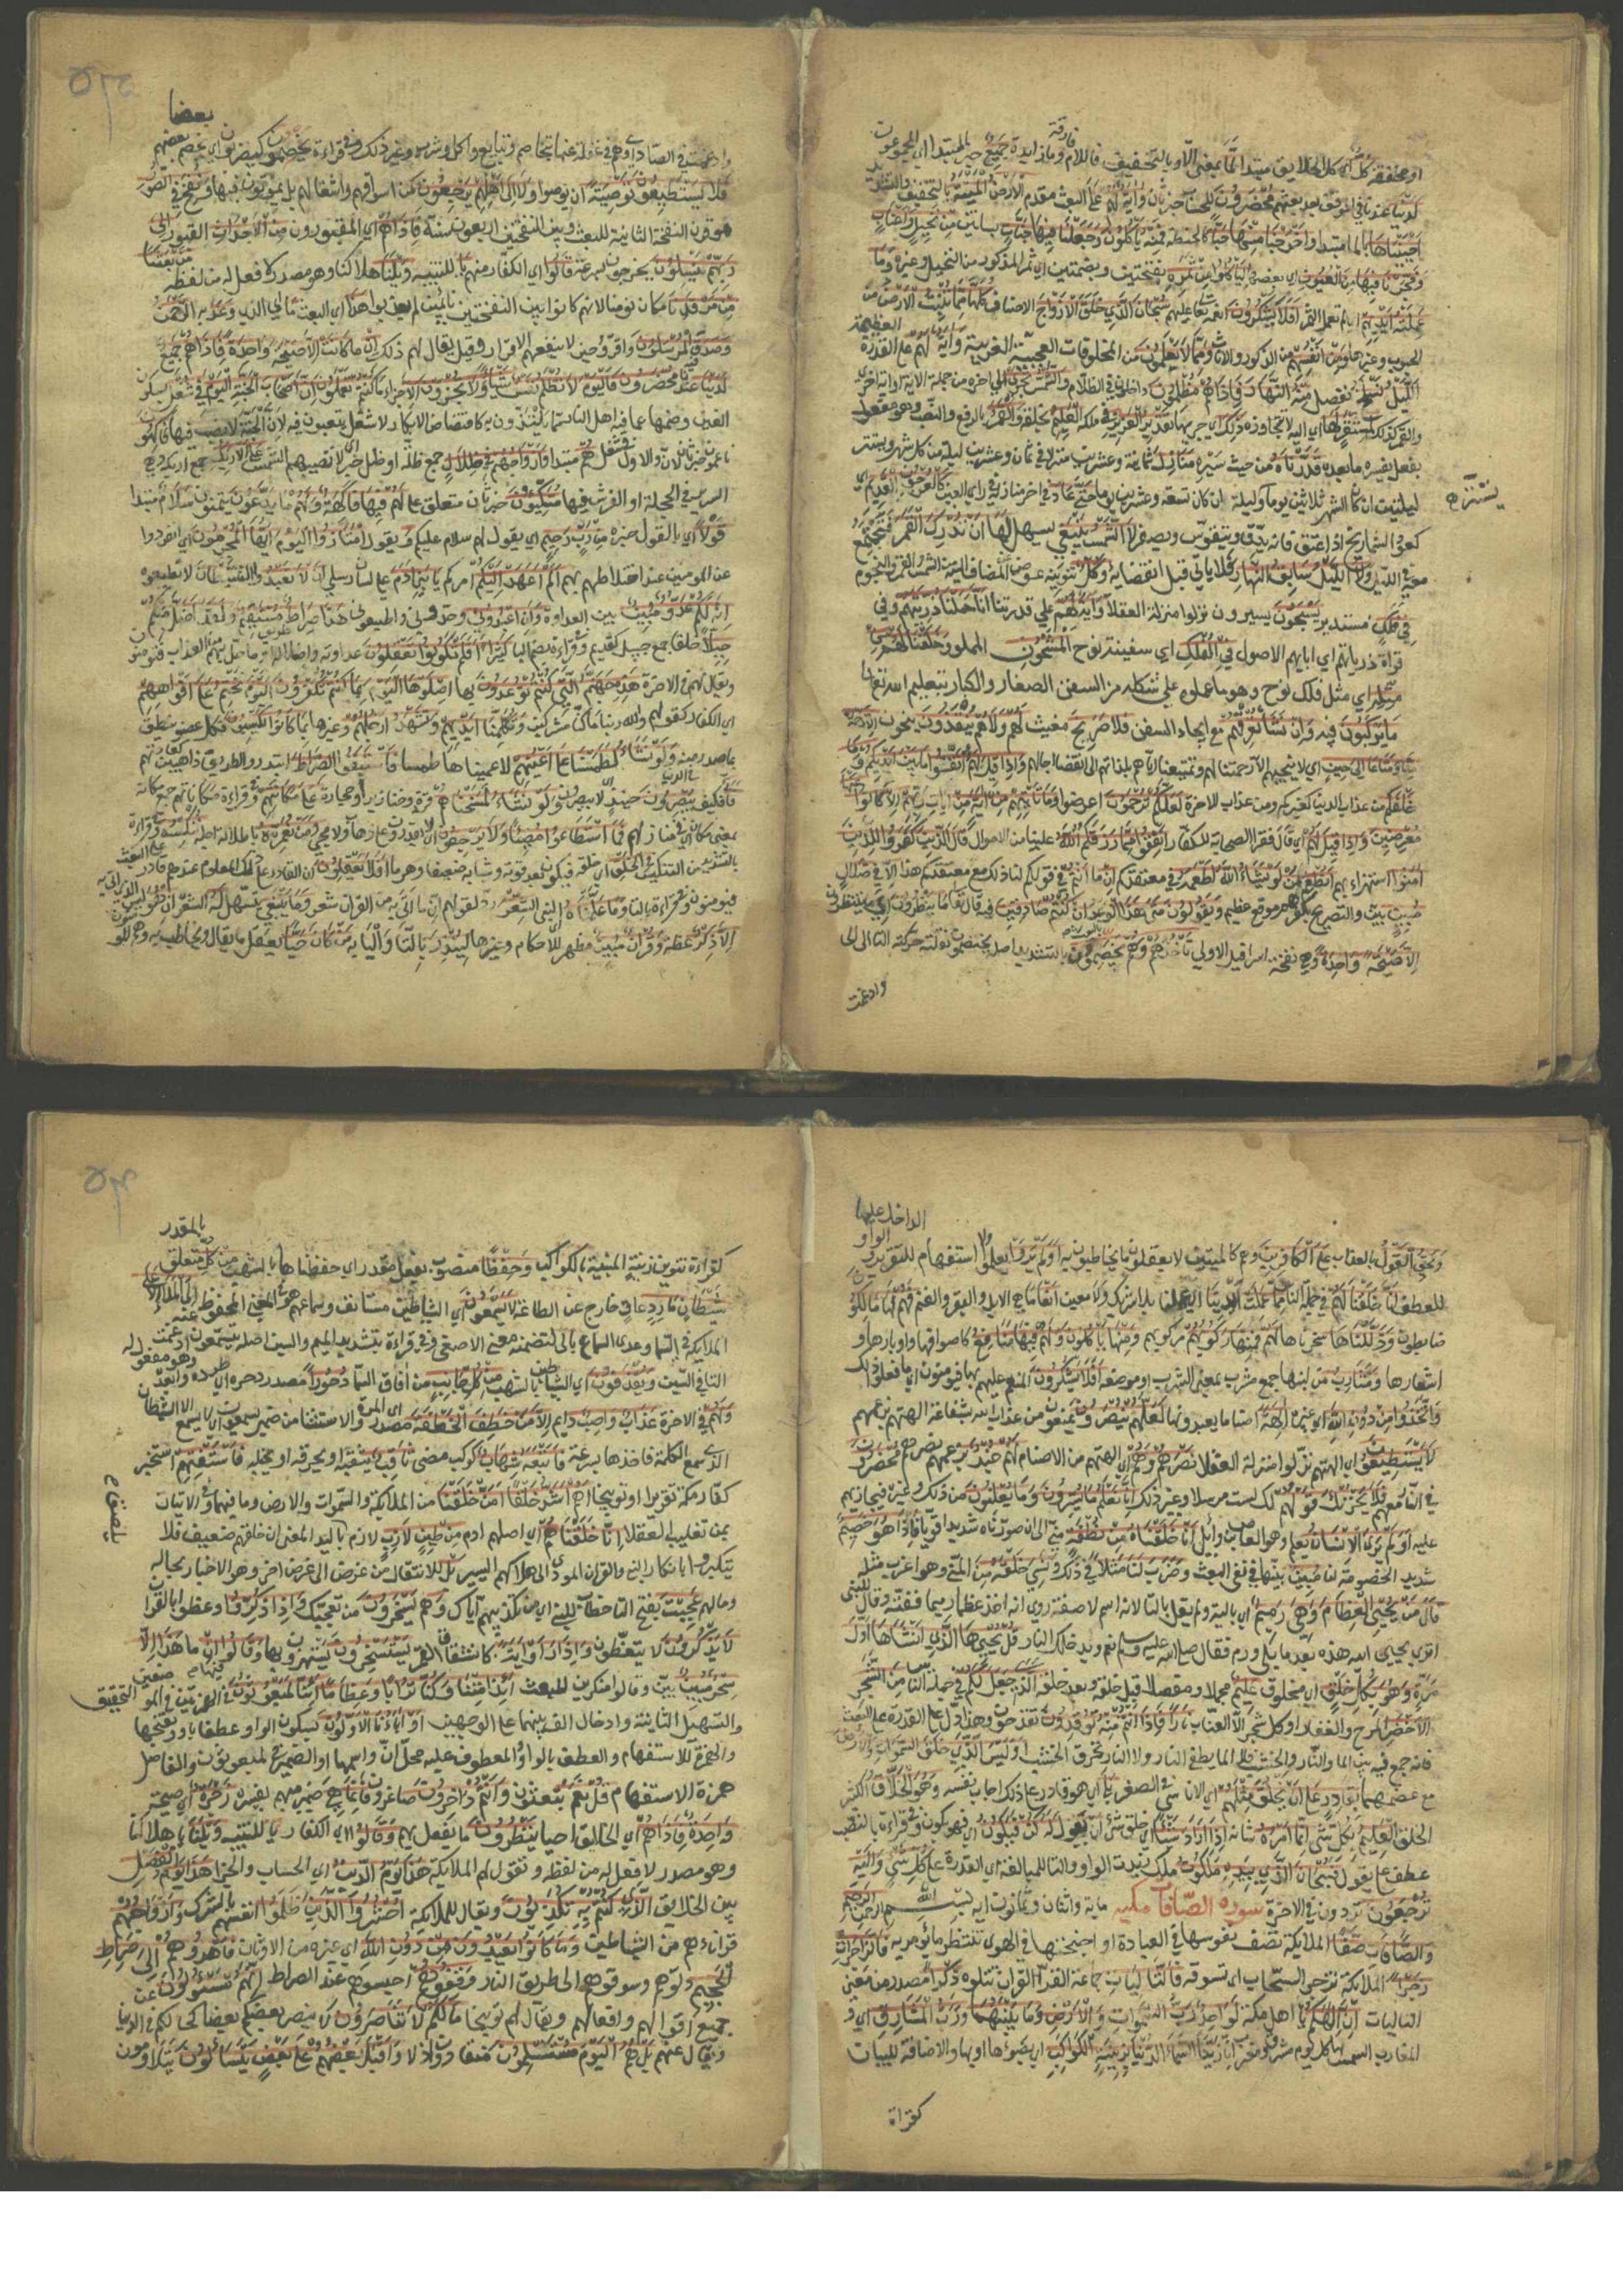 او مخففة كل اي كل الخلايق مبتدا لما بمعني الا و بالتخفيف فاللام فارقة وما زايدة جميع خبر المبتدا اي مجموعون
لدينا عندنا في الموقف بعد بعثهم محضرون للحساب خبر ثان واية لهم علي البعث مقدم الارض الميتة بالتخفيف والتشديد
احييناها بالما مبتدا واخرجنا منها حبا كالحنطة فمنه ياكلون وجعلنا فيها جنات بساتين من نخيل واعناب
وفجرنا فيها من العيون اي بعضها لياكلوا من ثمره بفتحتين وبضمتين اي ثمر المذكور من النخيل وغيره وما
عملته ايديهم اي لم تعمل الثمر افلا يشكرون انعمه تعالي عليهم سبحان الذي خلق الازواج الاصناف كلها مما تنبت الارض من
الحبوب وغيرها ومن انفسهم من الذكور والاناث ومما لا يعلمون من المخلوقات العجيبة الغريبة واية لهم علي القدرة العظيمة
الليل نسلخ نفصل منه النهار فاذا هم مظلمون داخلون في الظلام والشمس تجري الي اخره من جملة الاية او اية اخري
والقمر كذلك لمستقر لها اي اليه لا تتجاوزه ذلك اي جريها تقدير العزيز في ملكه العليم بخلقه والقمر بالرفع والنصب وهو منصوب
بفعل يفسره ما بعده قدرناه من حيث سيره منازل ثمانية وعشرين منزلا في ثمان وعشرين ليلة من كل شهر ويستتر
ليلتين ان كان الشهر ثلاثين يوما وليلة ان كان تسعة وعشرين يوما حتي عاد في اخر منازله في راي العين كالعرجون القديم اي
كعود الشماريخ اذا عتق فانه يدق ويتقوس ويصفر لا الشمس ينبغي يسهل لها ان تدرك القمر فتجتمع
معه في الليل ولا الليل سابق النهار فلا ياتي قبل انقضايه وكل تنوينه عوض عن المضاف اليه من الشمس والقمر والنجوم
في فلك مستدير يسبحون يسيرون نزلوا منزلة العقلا واية لهم علي قدرتنا انا حملنا ذريتهم وفي
قراة ذرياتهم اي اباهم الاصول في الفلك اي سفينة نوح المشحون المملو وخلقنا لهم من
مثله اي مثل فلك نوح وهو ما عملوه علي شكله من السفن الصغار والكبار بتعليم الله تعالي
ما يركبون فيه وان نشا نغرقهم مع ايجاد السفن فلا صريخ مغيث لهم ولا هم ينقذون ينجون الا رحمة
منا ومتاعا الي حين اي لا ينجيهم الا رحمتنا لهم وتمتيعنا اياهم بلذاتهم الي انقضا اجالهم واذا قيل لهم اتقوا ما بين ايديكم وما
خلفكم من عذاب الدنيا كغيركم ومن عذاب الاخرة لعلكم ترحمون اعرضوا وما تاتيهم من اية من ايات ربهم الا كانوا عنها
معرضين واذا قيل لهم اي قال فقرا الصحابة للكفار انفقوا مما رزقكم الله علينا من الاموال قال الذين كفروا للذين
امنوا استهزاء بهم انطعم من لو يشاء الله اطعمه في معتقدكم ان ما انتم في قولكم لنا ذلك مع معتقدكم هذا الا في ضلال
مبين بين والتصريح بكفرهم موقع عظيم ويقولون متي هذا الوعد ان كنتم صادقين فيه قال تعالي ما ينظرون اي ما ينتظرون
الا صيحة واحدة وهي نفخة اسرافيل الاولي تاخذهم وهم يخصمون بالتشديد اصله يختصمون نقلت حركة التا الي الخا
وادغمت
وادغمت في الصاد اي وهم في غفلة عنها بتخاصم وتبايع واكل وشرب وغير ذلك وفي قراءة يخصمون كيضربون اي يخصم بعضهم بعضا
فلا يستطيعون توصية ان يوصوا ولا الي اهلهم يرجعون من اسواقهم واشغالهم بل يموتون فيها ونفخ في الصور
هو قرن النفخة الثانية للبعث وبين النفختين اربعون سنة فاذا هم اي المقبورون من الاجداث القبور الي
ربهم ينسلون يخرجون بسرعة قالوا اي الكفار منهم يا للتنبيه ويلنا هلاكنا وهو مصدر لا فعل له من لفظه من بعثنا
من مرقدنا لانهم كانوا بين النفختين نايمين لم يعذبوا هذا اي البعث ما اي الذي وعد به الرحمن
وصدق المرسلون اقروا حين لا ينفعهم الاقرار وقيل يقال لهم ذلك ان ما كانت الا صيحة واحدة فاذا هم جميع
لدينا عندنا محضرون فاليوم لا تظلم نفس شيا ولا تجزون الا جزاء ما كنتم تعملون ان اصحاب الجنة اليوم في شغل بسكون
الغين وضمها عما فيه اهل النار مما يلتذون به كافتضاض الابكار لا شغل يتعبون فيه لان الجنة لا نصب فيها فاكهون
ناعمون خبر ثان لان والاول في شغل هم مبتدا وازواجهم في ظلال جمع ظلة او ظل خبر اي لا تصيبهم الشمس علي الارايك جمع اريكة وهي
السرير في الحجلة او الفرش فيها متكئون خبر ثان متعلق علي لهم فيها فاكهة ولهم ما يدعون يتمنون سلام مبتدا
قولا اي بالقول خبره من رب رحيم اي يقول لهم سلام عليكم ويقول امتازوا اليوم ايها المجرمون اي انفردوا
عن المومنين عند اختلاطهم بهم الم اعهد اليكم امركم يا بني ادم علي لسان رسلي ان لا تعبدوا الشيطان لا تطيعوه
انه لكم عدو مبين بين العداوة وان اعبدوني وحدوني واطيعوني هذا صراط مستقيم ولقد اضل منكم
جبلا خلقا جمع جبيل كقديم وفي قراءة بضم البا كثيرا افلم تكونوا تعقلون عداوته واضلاله او ما حل بهم من العذاب فتومنون
ويقال لهم في الاخرة هذه جهنم التي كنتم توعدون بها اصلوها اليوم بما كنتم تكفرون اليوم نختم علي افواههم
اي الكفار لقولهم والله ربنا ما كنا مشركين وتكلمنا ايديهم وتشهد ارجلهم وغيرها بما كانوا يكسبون فكل عضو ينطق
بما صدر منه ولو نشاء لطمسنا علي اعينهم لاعميناها طمسا فاستبقوا ابتدروا الصراط الطريق ذاهبين كعادتهم
فاني فكيف يبصرون حينيذ اي لا يبصرون ولو نشاء لمسخناهم قردة وخنازير او حجارة علي مكانتهم وفي قراءة مكاناتهم جمع مكانة
بمعني مكان اي في منازلهم فما استطاعوا مضيا ولا يرجعون اي لم يقدروا علي ذهاب ولا مجي ومن نعمره باطالة اجله ننكسه وفي قراءة
بالتشديد من التنكيس في الخلق اي خلقه فيكون بعد قوته وشبابه ضعيفا وهرما افلا يعقلون ان القادر علي ذلك المعلوم عندهم قادر علي البعث
فيومنون وفي قراءة بالتا وما علمناه اي النبي الشعر رد لقولهم ان ما اتي به من القران شعر وما ينبغي يسهل له الشعر ان هو ليس الذي اتي به
الا ذكر عظة وقران مبين مظهر للاحكام وغيرها لينذر بالتا واليا به من كان حيا يعقل ما يقال ويخاطب به وهم المومنون
الداخل عليها
ويحق القول بالعذاب علي الكافرين وهم كالميتين لا يعقلون ما يخاطبون به اولم يروا يعلموا استفهام للتقرير والواو
للعطف انا خلقنا لهم في جملة الناس مما عملت ايدينا عملنا بلا شريك ولا معين انعاما هي الابل والبقر والغنم فهم لها مالكون
ضابطون وذللناها سخرناها لهم فمنها ركوبهم مركوبهم ومنها ياكلون ولهم فيها منافع كاصوافها واوبارها و
اشعارها ومشارب من لبنها جمع مشرب بمعني الشرب او موضعه افلا يشكرون المنعم عليهم بها فيومنون اي ما فعلوا ذلك
واتخذوا من دون الله اي غيره الهة اصناما يعبدونها لعلهم ينصرون يمنعون من عذاب الله بشفاعة الهتهم بزعمهم
لا يستطيعون اي الهتهم نزلوا منزلة العقلا نصرهم وهم اي الهتهم من الاصنام لهم جند بزعمهم نصرهم محضرون
في النار معهم فلا يحزنك قولهم لك لست مرسلا وغير ذلك انا نعلم ما يسرون وما يعلنون من ذلك وغيره فيجازيهم
عليه اولم ير الانسان يعلم وهو العاص بن وايل انا خلقناه من نطفة مني الي ان صيرناه شديدا قويا فاذا هو خصيم
شديد الخصومة لنا مبين بينها في نفي البعث وضرب لنا مثلا في ذلك ونسي خلقه من المني وهو اغرب من مثله
قال من يحيي العظام وهي رميم اي بالية ولم يقل بالتا لانه اسم لا صفة روي انه اخذ عظما رميما ففتته وقال للنبي
اتري يحيي الله هذه بعد ما بلي ورم فقال صلي الله عليه وسلم نعم ويدخلك النار قل يحييها الذي انشاها اول
مرة وهو بكل خلق اي مخلوق عليم مجملا ومفصلا قبل خلقه وبعد خلقه الذي جعل لكم في جملة الناس من الشجر
الاخضر المرخ والعفار او كل شجر الا العناب نارا فاذا انتم منه توقدون تقدحون وهذا دال علي القدرة علي البعث
فانه جمع فيه بين الما والنار والخشب فلا الما يطفي النار ولا النار تحرق الخشب اوليس الذي خلق السموات والارض
مع عظمهما بقادر علي ان يخلق مثلهم اي الاناسي في الصغر بلي اي هو قادر علي ذلك اجاب نفسه وهو الخلاق الكثير
الخلق العليم بكل شي انما امره شانه اذا اراد شيا اي خلق شي ان يقول له كن فيكون اي فهو يكون وفي قراءة بالنصب
عطف علي يقول فسبحان الذي بيده ملكوت ملك زيدت الواو والتا للمبالغة اي القدرة علي كل شي واليه
ترجعون تردون في الاخرة سورة الصافات مكية ماية واثنان وثمانون اية بسم الله الرحمن الرحيم
والصافات صفا الملايكة تصف نفوسها في العبادة او اجنحتها في الهوي تنتظر ما يومر به فالزاجرات
زجرا الملايكة تزجر السحاب اي تسوقه فالتاليات جماعة القرا القران تتلوه ذكرا مصدر من معني
التاليات ان الهكم يا اهل مكة لواحد رب السموات والارض وما بينهما ورب المشارق اي و
المغارب للشمس لها كل يوم مشرق ومغرب انا زينا السماء الدنيا بزينة الكواكب اي بضوءها او بها والاضافة للبيان
كقراة
كقراءة تنوين زينة المبينة بالكواكب وحفظا منصوب بفعل مقدر اي حفظناها بالشهب من كل متعلق بالمقدر
شيطان مارد عات خارج عن الطاعة لا يسمعون اي الشياطين مستانف وسماعهم هو في المعني المحفوظ عنه الي الملا الاعلي
الملايكة في السما وعدي السماع بالي لتضمنه معني الاصغا وفي قراءة بتشديد الميم والسين اصله يتسمعون ادغمت
التا في السين ويقذفون اي الشياطين بالشهب من كل جانب من افاق السما دحورا مصدر دحره اي طرده وابعده وهو مفعول له
ولهم في الاخرة عذاب واصب دايم الا من خطف الخطفة مصدر اي المرة والاستثنا من ضمير يسمعون اي لا يسمع الا الشيطان
الذي سمع الكلمة فاخذها بسرعة فاتبعه شهاب كوكب مضي ثاقب يثقبه او يحرقه او يخبله فاستفتهم استخبر
كفار مكة تقريرا او توبيخا اهم اشد خلقا ام من خلقنا من الملايكة والسموات والارض وما فيهما وفي الاتيان
بمن تغليب العقلا انا خلقناهم اي اصلهم ادم من طين لازب لازم يلصق باليد المعني ان خلقهم ضعيف فلا
يتكبروا بانكار النبي والقران المودي الي هلاكهم اليسير بل للانتقال من غرض الي غرض اخر وهو الاخبار بحاله
وحالهم عجبت بفتح التا خطابا للنبي اي من تكذيبهم اياك وهم يسخرون من تعجبك واذا ذكروا وعظوا بالقران
لا يذكرون لا يتعظون واذا راوا اية كانشقاق القمر يستسخرون يستهزون بها وقالوا فيها ان ما هذا الا
سحر مبين بين وقالوا منكرين للبعث ايذا متنا وكنا ترابا وعظاما اينا لمبعوثون في الهمزتين في الموضعين التحقيق
والتسهيل الثانية وادخال الف بينهما علي الوجهين او اباونا الاولون بسكون الواو عطفا باو وبفتحها
والهمزة للاستفهام والعطف بالواو والمعطوف عليه محل ان واسمها او الضمير في لمبعوثون والفاصل
همزة الاستفهام قل نعم تبعثون وانتم داخرون صاغرون فانما هي ضمير مبهم يفسره زجرة اي صيحة
واحدة فاذا هم اي الخلايق احيا ينظرون ما يفعل بهم وقالوا اي الكفار يا للتنبيه ويلنا هلاكنا
وهو مصدر لا فعل له من لفظه وتقول لهم الملايكة هذا يوم الدين اي الحساب والجزا هذا يوم الفصل
بين الخلايق الذي كنتم به تكذبون ويقال للملايكة احشروا الذين ظلموا انفسهم بالشرك وازواجهم
قرناءهم من الشياطين وما كانوا يعبدون من دون الله اي غيره من الاوثان فاهدوهم الي صراط
الجحيم دلوهم وسوقوهم الي طريق النار وقفوهم احبسوهم عند الصراط انهم مسئولون عن
جميع اقوالهم وافعالهم ويقال لهم توبيخا ما لكم لا تناصرون لا ينصر بعضكم بعضا كحالكم في الدنيا
ويقال عنهم بل هم اليوم مستسلمون منقادون اذلا واقبل بعضهم علي بعض يتساءلون يتلاومون